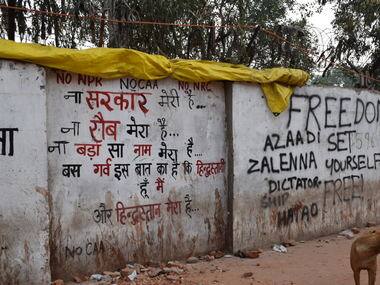 NO NPR NO CAA NO NRC
ना सरकार मेरी है...
ना रौब मेरा है...
ना बड़ा सा नाम मेरा है...
बस गर्व इस बात का है कि हिन्दुस्तानी
हूँ मैं
और हिन्दुस्तान मेरा है...
NO CAA
FREEDOM
AZAADI SET
ZALENNA YOURSELF
DICTATOR FREE!
SHIP
HATAO